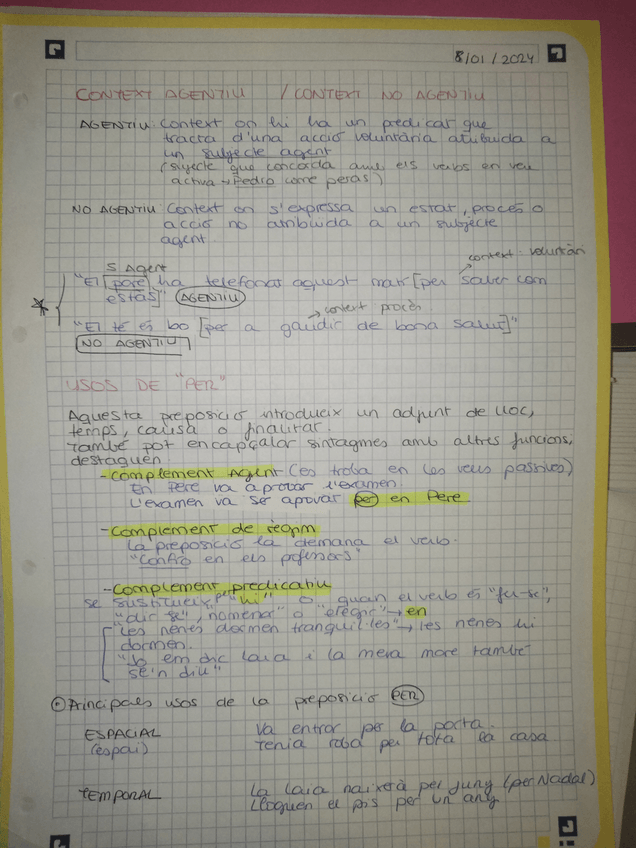 8/01/2024
CONTEXT AGENTIU / CONTEXT NO AGENTIU
AGENTIU: Context on hi ha un predicat que
tracta d'una acció voluntària atribuida a
un subjecte agent
(subjecte que concorda amb els verbs en veu
activa → Pedro come peras)
NO AGENTIU: Context on s'expressa un estat, procés o
acció no atribuida a un subjecte
agent.
S Agent
context voluntari
"El [pare] ha telefonat aquest matí [per saber com
estàs]" AGENTIU
context procés
"El té és bo [per a gaudir de bona salut]"
NO AGENTIU
USOS DE "PER"
Aquesta preposició introdueix un adjunt de lloc,
temps, causa o finalitat.
També pot encapçalar sintagmes amb altres funcions,
destaquen:
-Complement Agent (es troba en les veus passives)
En Pere va aprovar l'examen.
L'examen va ser aprovat per en Pere
-Complement de règim
La preposició la demana el verb.
"Confio en els professors"
-Complement predicatiu
se substitueix per "hi" o quan el verb és "fer-se",
"dir-se", nomenar" o "elegir" → en
"Les nenes dormen tranquil·les" → les nenes hi
dormen.
"Jo em dic Laia i la meva mare també
se'n diu"
Principals usos de la preposició PER
ESPACIAL Va entrar per la porta.
(espai) Tenia roba per tota la casa
TEMPORAL La Laia naixerà per juny (per Nadal)
Lloguen el pis per un any